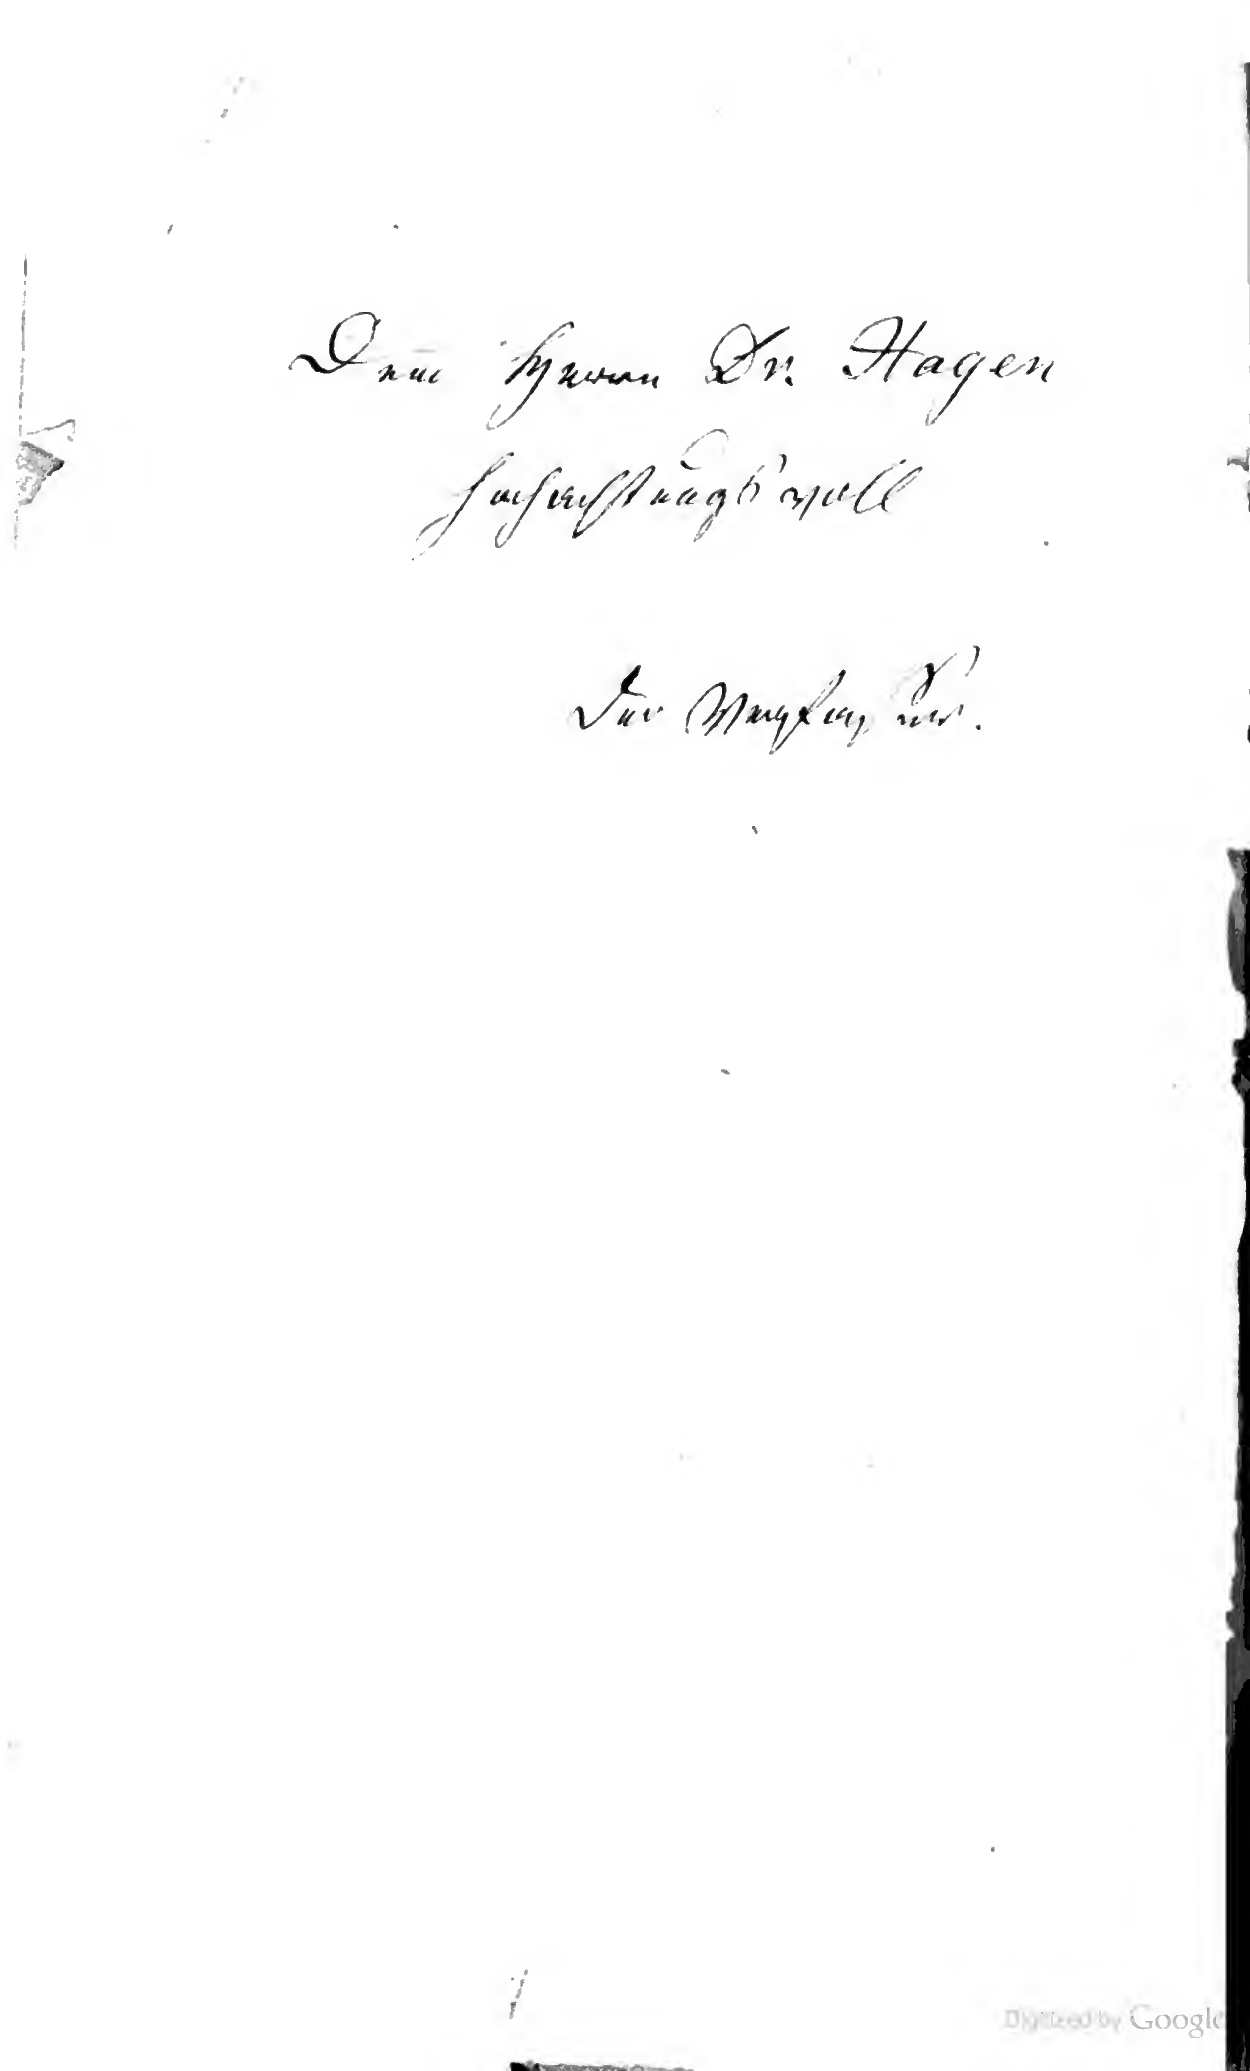 Dem Herrn Dr. Hagen
hochachtungsvoll
Der Verfasser.
Digitized by Google